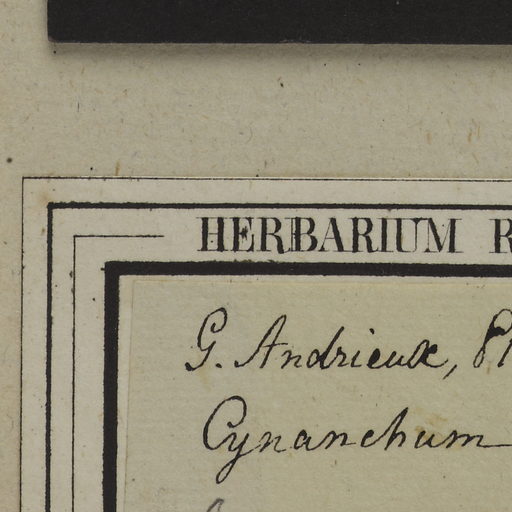 HERBARIUM R
G. Andrieux, Pl
Cynanchum